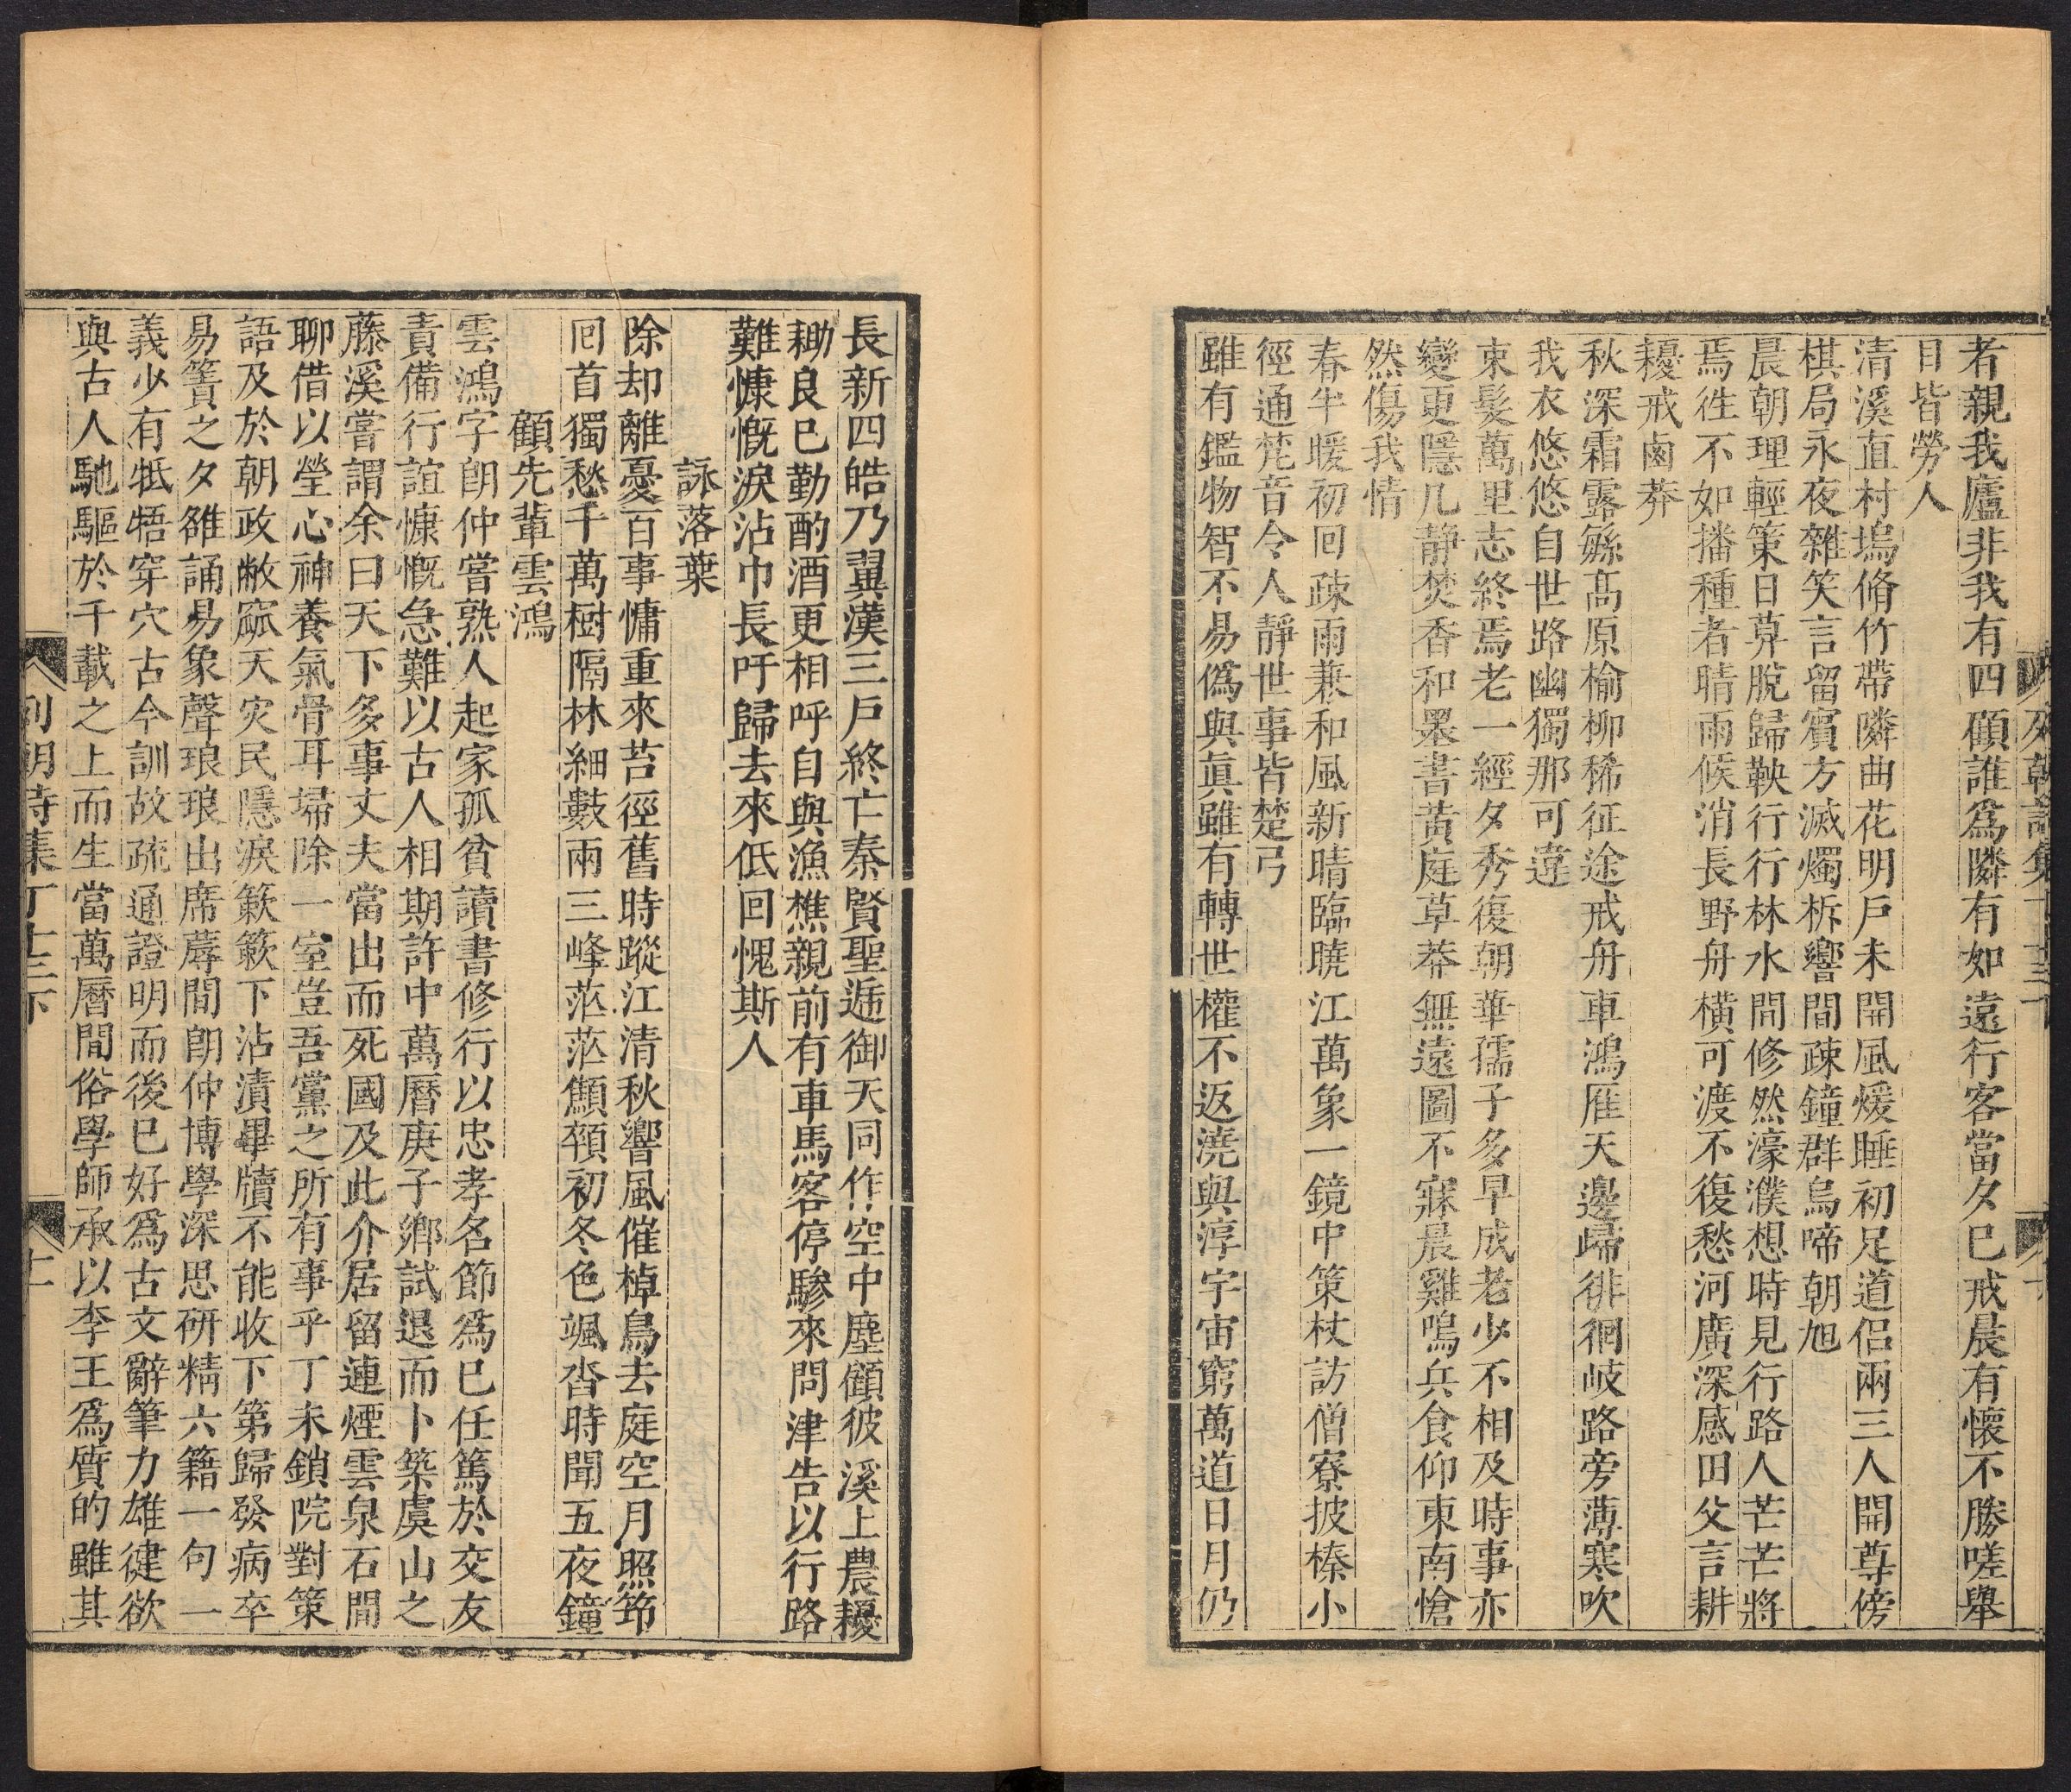 者親我廬非我有四顧誰爲隣有如遠行客當夕已戒晨有懷不勝嗟舉
目皆勞人
清溪直村塢脩竹帶隣曲花明戸未開風煖睡初足道侶兩三人開尊傍
棋局永夜雜笑言留賓方滅燭柝響間疎鐘群烏啼朝旭
晨朝理輕策日莫脫歸鞅行行林水間修然濠濮想時見行路人芒芒將
焉徃不如播種者晴雨候消長野舟橫可渡不復愁河廣深感田父言耕
耰戒鹵莽
秋深霜露緐髙原榆柳稀征途戒舟車鴻雁天邊歸徘徊岐路旁薄寒吹
我衣悠悠自世路幽獨那可違
束髮萬里志終焉老一經夕秀復朝華孺子多早成老少不相及時事亦
變更隱几静焚香和墨書黃庭草莽無遠圖不寐晨雞鳴兵食仰東南愴
然傷我情
春半暖初回疎雨兼和風新晴臨曉江萬象一鏡中策杖訪僧寮披榛小
徑通梵音令人靜世事皆楚弓
雖有鑑物智不易僞與眞雖有轉世權不返澆與淳宇宙窮萬道日月仍
長新四皓乃翼漢三戸終亡秦賢聖遞御天同作空中塵顧彼溪上農耰
耡良已勤酌酒更相呼自與漁樵親前有車馬客停驂來問津告以行路
難慷慨淚沾巾長吁歸去來低回愧斯人
詠落葉
除却離憂百事慵重來苔徑舊時蹤江清秋響風催棹鳥去庭空月照筇
囘首獨愁千萬樹隔林細數兩三峰茫茫顦顇初冬色颯沓時聞五夜鐘
顧先輩雲鴻
雲鴻字朗仲嘗熟人起家孤貧讀書修行以忠孝名節爲已任篤於交友
責備行誼慷慨急難以古人相期許中萬曆庚子鄉試退而卜築虞山之
藤溪嘗謂余曰天下多事丈夫當出而死國及此介居留連煙雲泉石間
聊借以瑩心神養氣骨耳埽除一室豈吾黨之所有事乎丁未鎖院對策
語及於朝政敝窳天灾民隱淚簌簌下沾漬畢牘不能收下第歸發病卒
易簀之夕雒誦易象聲琅琅出席蓐間朗仲博學深思研精六籍一句一
義少有牴牾穿穴古今訓故疏通證明而後已好爲古文辭筆力雄健欲
與古人馳驅於千載之上而生當萬曆間俗學師承以李王爲質的雖其
列朝詩集丁十三下